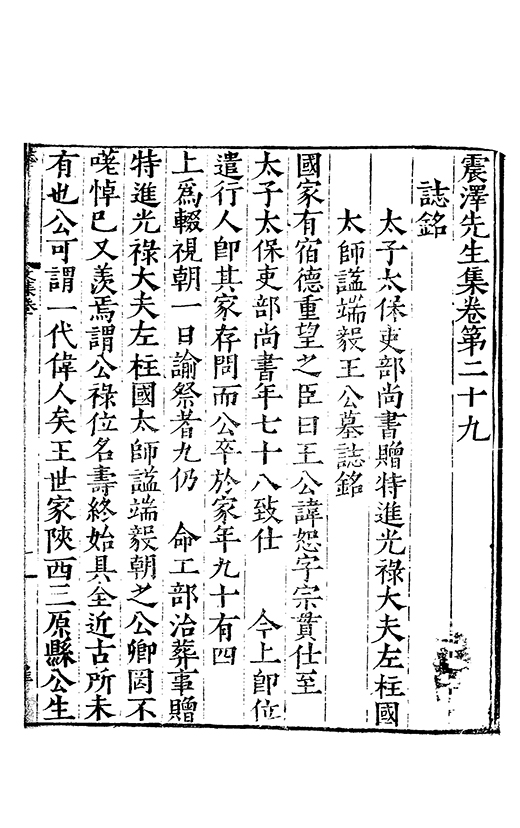 震澤先生集卷第二十九
誌銘
太子太保吏部尚書贈特進光祿大夫左柱國
太師謚端毅王公墓誌銘
國家有宿德重望之臣曰王公諱恕字宗貫仕至
太子太保吏部尚書年七十八致仕　今上卽位
遣行人卽其家存問而公卒於家年九十有四
上爲輟視朝一日諭祭者九仍　命工部治葬事贈
特進光祿大夫左柱國太師謚端毅朝之公卿罔不
嗟悼已又羨焉謂公祿位名壽終始具全近古所未
有也公可謂一代偉人矣王世家陝西三原縣公生